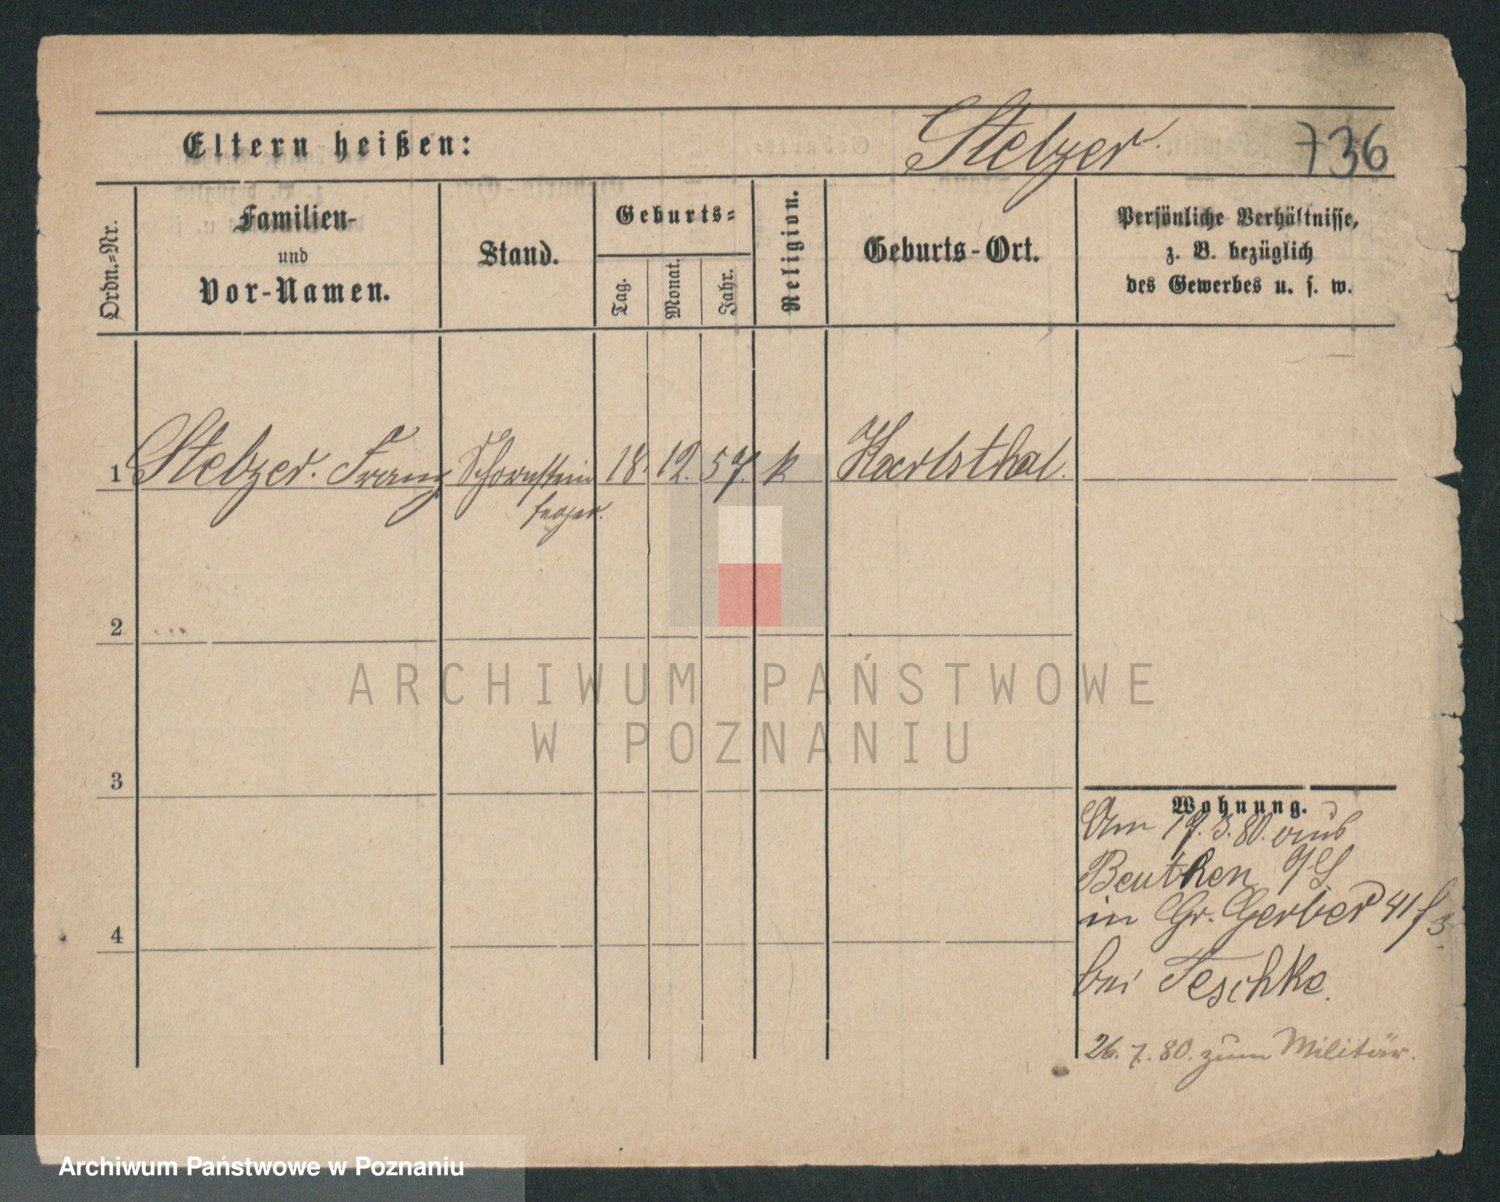 Eltern heißen:
Stelzer.
736
Ordn.-Nr.
Familien-
und
Vor-Namen.
Stand.
Geburts-
Tag.
Monat.
Jahr.
Religion.
Geburts-Ort.
Persönliche Verhältnisse,
z. B. bezüglich
des Gewerbes u. s. w.
1 Stelzer. Franz Schornstein 18. 12. 57. k Karlsthal.
feger.
2
3
4
Wohnung.
Am 19. 3. 80. aus
Beuthen O/S
in Gr. Gerber 41 f 3.
bei Teschke.
26. 7. 80. zum Militär.
ARCHIWUM PAŃSTWOWE
W POZNANIU
Archiwum Państwowe w Poznaniu